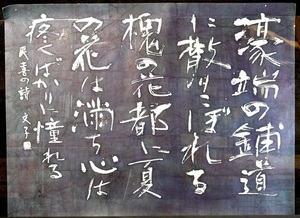 濠端の鋪道
に散りこぼれる
槐の花都に夏
の花は満ち心は
疼くばかりに憧れる
民喜の詩 文子